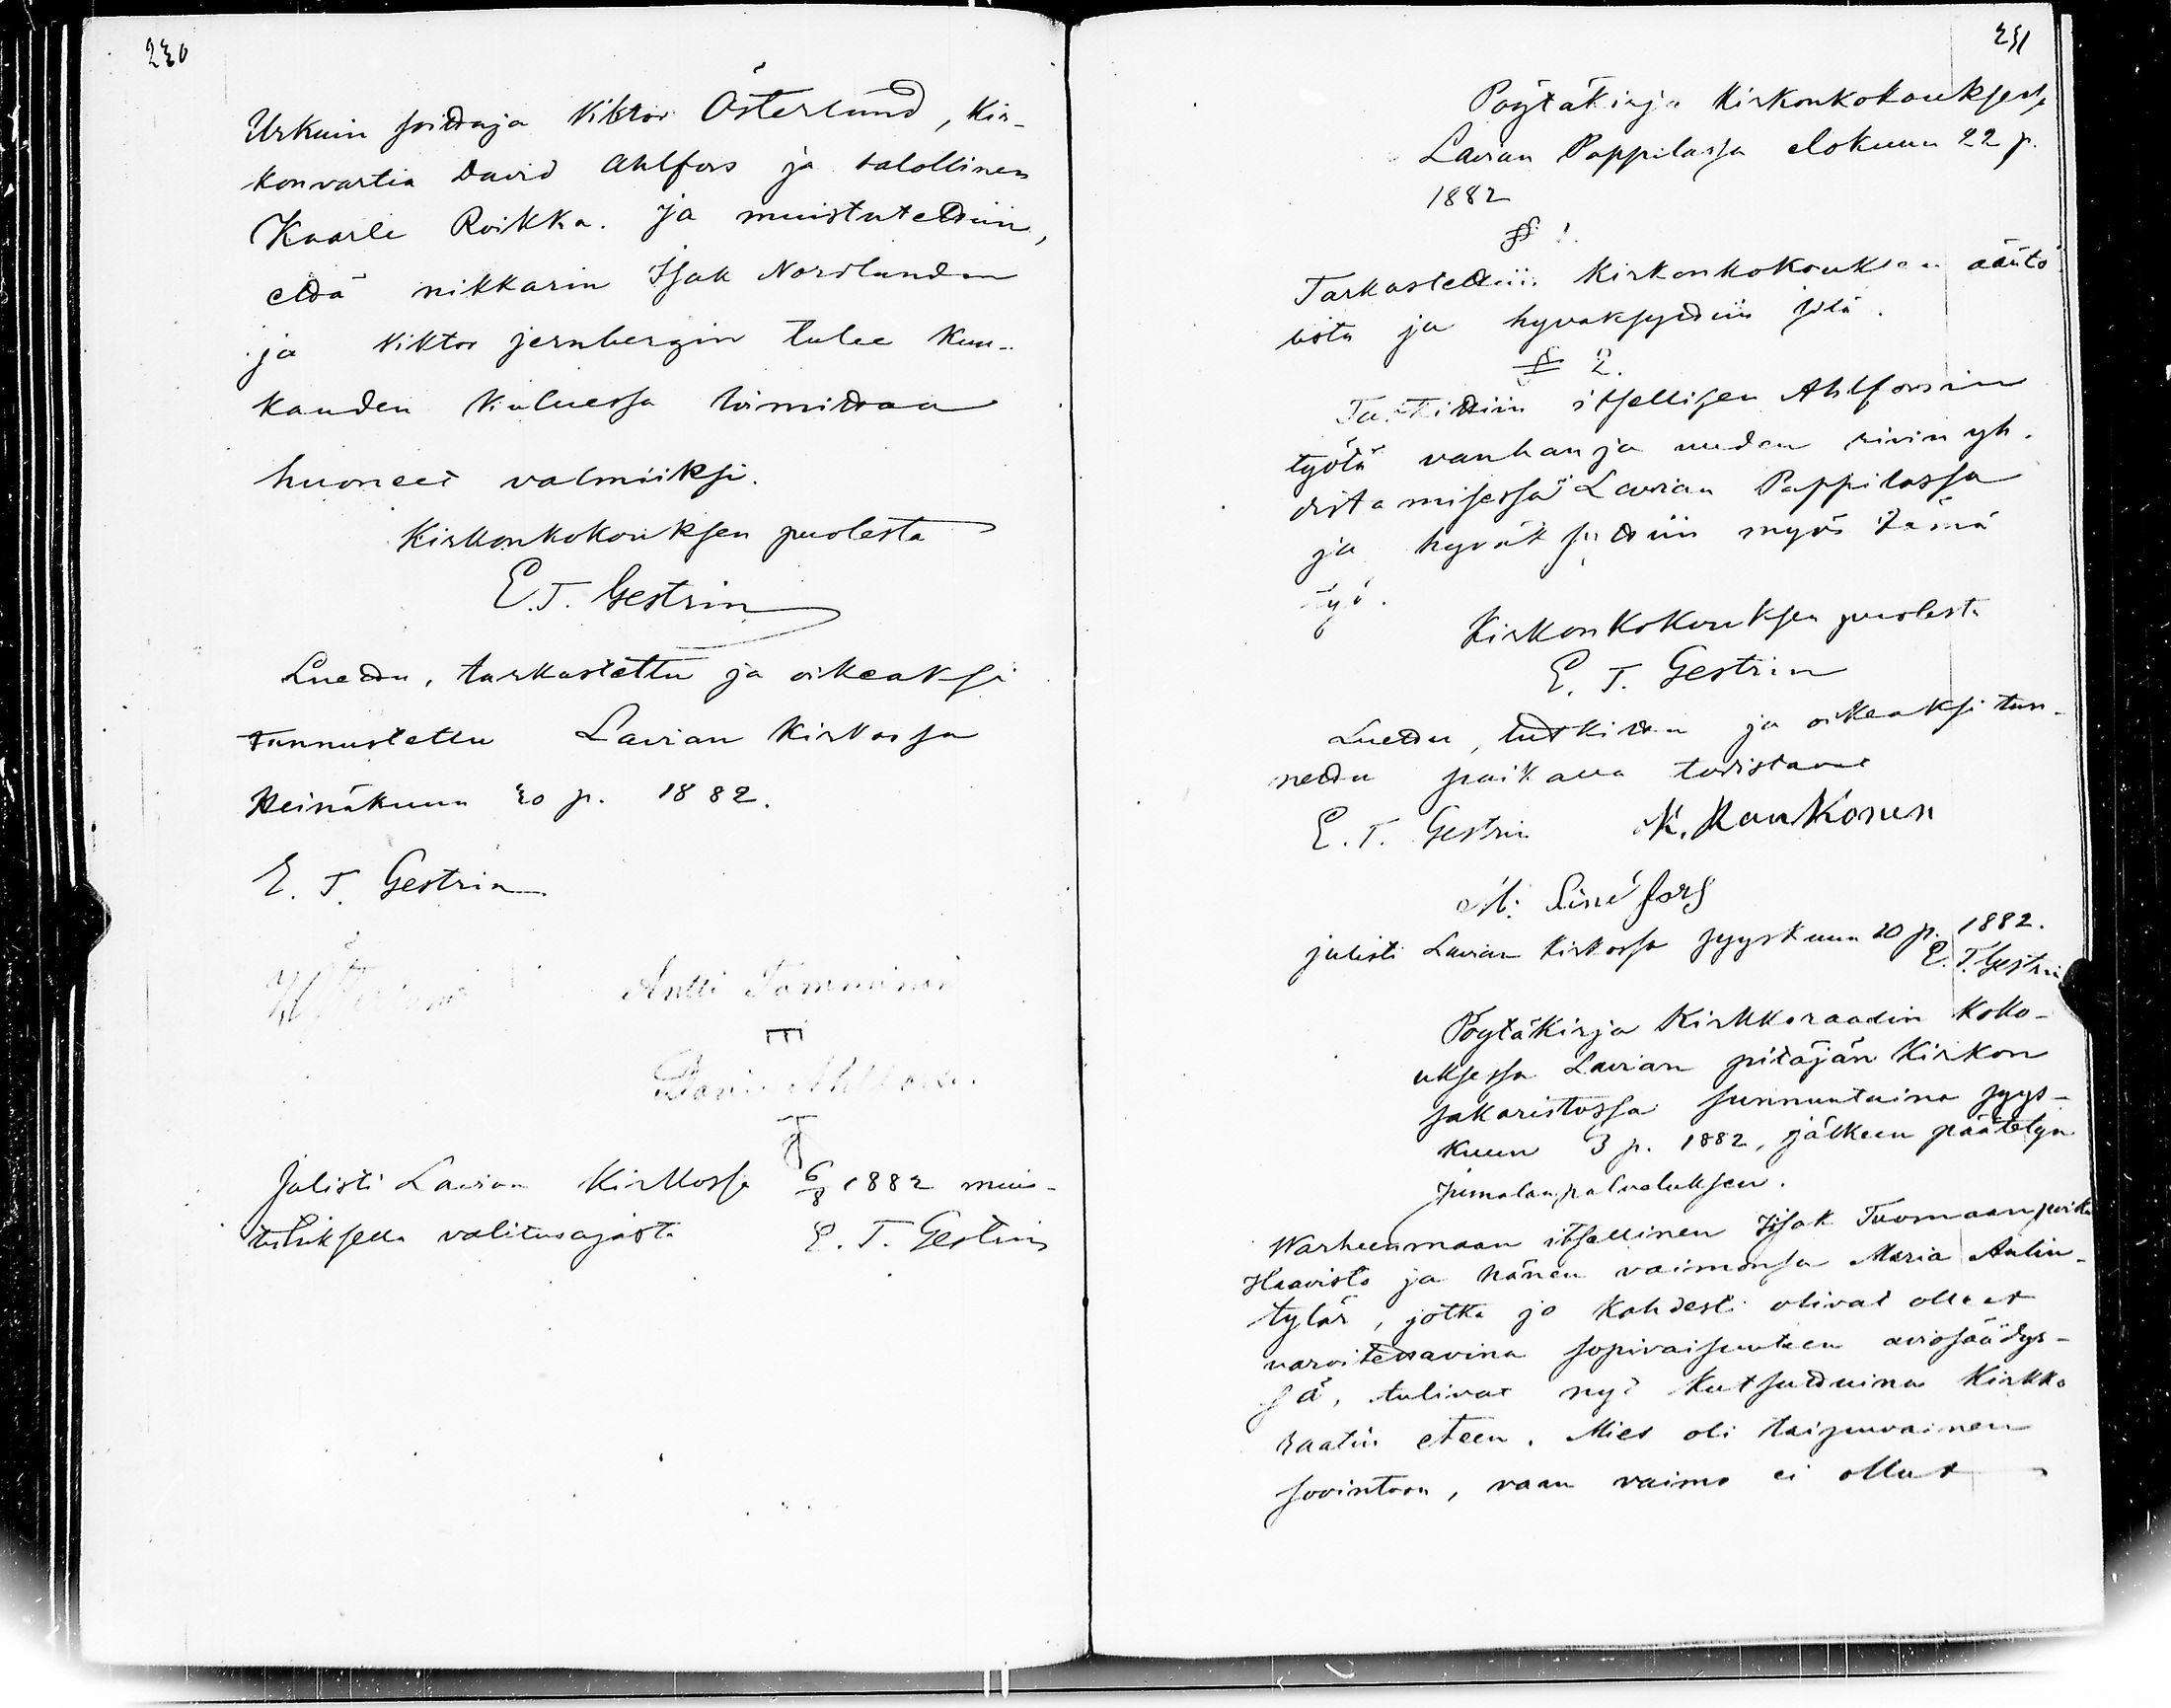 230
Urkuin soittaja Viktor Österlund, Kir-
konvartia David Ahlfors ja talollinen
Kaarle Roikka. Ja muistutettiin,
että nikkarin Isak Nordlundin
ja Viktor jernbergin tulee Kuu-
kauden Kuluessa toimittaa
huoneet valmiiksi.
Kirkonkokouksen puolesta
E. T. Gestrin
Luettu, tarkastettu ja oikeaksi
tunnustettu Lavian Kirkossa
Heinäkuun 30 p. 1882.
E. T. Gestrin
Antti Tamminen
David Ahlfors.
Julisti Lavian Kirkossa 6/8 1882 muis-
tutuksella valitusajasta E. T. Gestrin
231
Pöytäkirja Kirkonkokouksessa
Lavian Pappilassa elokuun 22 p.
1882
§ 1.
Tarkastettiin Kirkonkokouksen ääntö
lista ja hyväksyttiin se.
§ 2.
Tutkittiin itsellisen Ahlforsin
työtä vanhan ja uuden rivin yh-
distämisessä Lavian Pappilassa
ja hyväksyttiin myös tämä
työ.
Kirkonkokouksen puolesta
E. T. Gestrin
Luettu, tutkittu ja oikeaksi tun-
nettu paikalla todistavat
E. T. Gestrin K. Raukonen
M. Linefors
julisti Lavian Kirkossa syyskuun 10 p. 1882.
E. T. Gestrin
Pöytäkirja Kirkkoraadin Koko-
uksessa Lavian pitäjän Kirkon
sakaristossa sunnuntaina syys-
kuun 3 p. 1882, jälkeen päätetyn
Jumalanpalveluksen.
Warheenmaan itsellinen Isak Tuomaanpoika
Haavisto ja hänen vaimonsa Maria Antin-
tytär, jotka jo Kahdesti olivat olleet
varoitettavina sopivaisuuteen aviosäädys-
sä, tulivat nyt Kutsuttuina Kirkko
raatin eteen. Mies oli taipuvainen
sovintoon, vaan vaimo ei ollut